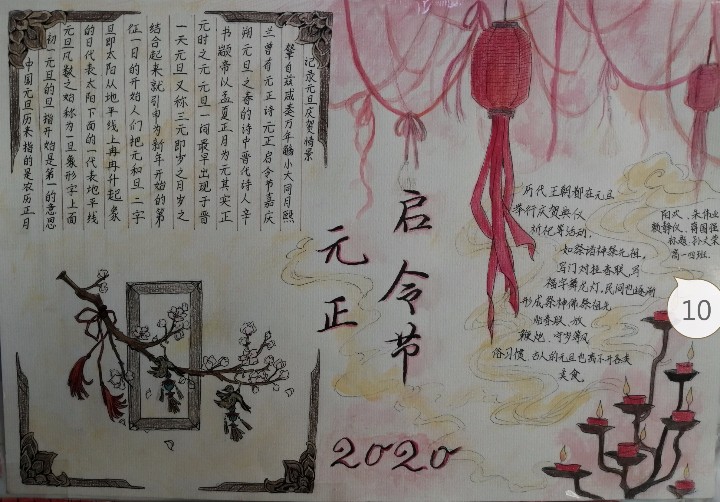 中国元旦历来指的是农历正月
初一元旦的旦指开始是第一的意思
元旦凡数之始称为一旦象形字上面
的日代表太阳下面的一代表地平线
旦即太阳从地平线上冉冉升起象
征一日的开始人们把元和旦二字
结合起来就引申为新年开始的第
一天元旦又称三元即岁之月岁之
元时之元元旦一词最早出现于晋
书颛帝以孟夏正月为元其实正
朔元旦之春的诗中晋代诗人辛
兰曾有元正诗元正启令节嘉庆
肇自兹咸奏万年觞小大同月熙
记录元旦庆贺情景
元正
启令节
2020
历代王朝都在元旦
举行庆贺典仪
祈祀等活动,
如祭诸神祭先祖,
写门对挂春联,写
福字舞龙灯,民间也逐渐
形成祭神佛祭祖先
贴春联、放
鞭炮、守岁等风
俗习惯 古人的元旦也离不开各类
美食
高一四班.
10